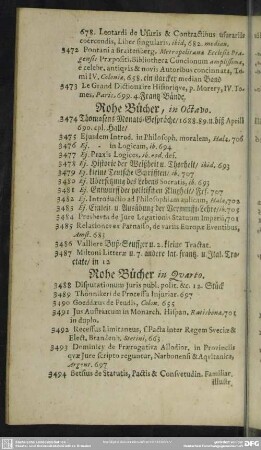 678. Leotardi de Usuris & Contractibus usurariis
coercendis, Liber singularis. ibid, 682. median.
3472 Pontani à Braitenberg, Metropolitanæ Ecclesiæ Pragensis
Præpositi, Bibliotheca Concionum amplissima,
è celebr. antiquis & novis Autoribus concinnata, Tomi
IV. Colonia, 658. ein starcker median Band
3473 Le Grand Dictionaire Historique, p. Morery, IV. Tomes,
Paris. 699. 4. Frantz Bände.
Rohe Bücher, in Octavo.
3474 Thomasens Monats-Gespräche 1688. 89. u. biß April
690. cpl. Halle
3475 Ejusdem Introd. in Philosoph. moralem, Hala, 706
3476 Ej. - - in Logicam, ib. 694
3477 Ej. Praxis Logices, ib. eod. def.
3478 Ej. Historie der Weißheit u. Thorheit, ibid, 693
3479 Ej. kleine Teutsche Schrifften, ib. 707
3480 Ej. Ubersetzung des Lebens Socratis, ib. 693
3481 Ej. Entwurff der politischen Klugheit, Lpf. 707
3482 Ej. Introductio ad Philosophiam aulicam, Hala, 702
3483 Ej. Einleit. u. Ausübung der Vernunfft-Lehre, ib. 705
3484 Presberta de Jure Legationis Statuum Imperii, 701
3485 Relationes ex Parnasso, de variis Europæ Eventibus,
Amst. 683
3486 Valliere Buß-Seuffzer u. 2. kleine Tractat.
3487 Miltoni Litteræ u. 7. andere lat. frantz. u. Ital. Tractate,
in 12
Rohe Bücher in Quarto.
3488 Disputationum juris publ. polit. &c. 12. Stück
3489 Thonnikeri de Processu Injuriar. 697
3490 Goddæus de Feudis, Colon. 655
3491 Jus Austriacum in Monarch. Hispan, Ratisbona, 701
in duplo.
3492 Recessus Limitaneus, s. Pacta inter Regem Sveciæ &
Elect. Brandenb. Stetini, 665
3493 Dominicy de Prærogativa Allodior. in Provinciis
quæ Jure Scripto reguntur, Narbonensi & Aqvitanica,
Argent. 697
3494 Betsius de Statutis, Pactis & Consvetudin. Familiar.
illustr.